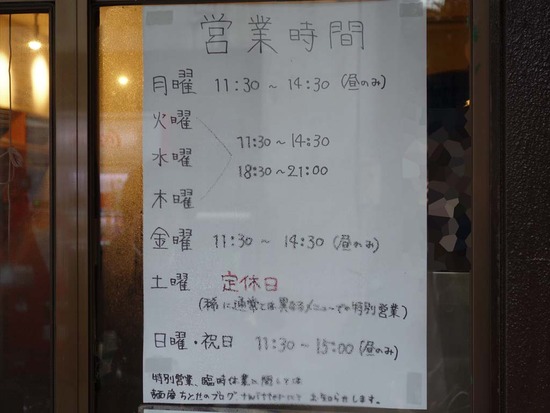 営業時間
月曜 11:30 ~ 14:30 (昼のみ)
火曜
水曜
木曜
11:30~14:30
18:30~21:00
金曜 11:30 ~ 14:30 (昼のみ)
土曜 定休日
(稀に通常とは異なるメニューでの特別営業)
日曜・祝日 11:30 ~ 15:00 (昼のみ)
特別営業、臨時休業に関しては
麺屋ちとせのブログ twitterにて お知らせします。